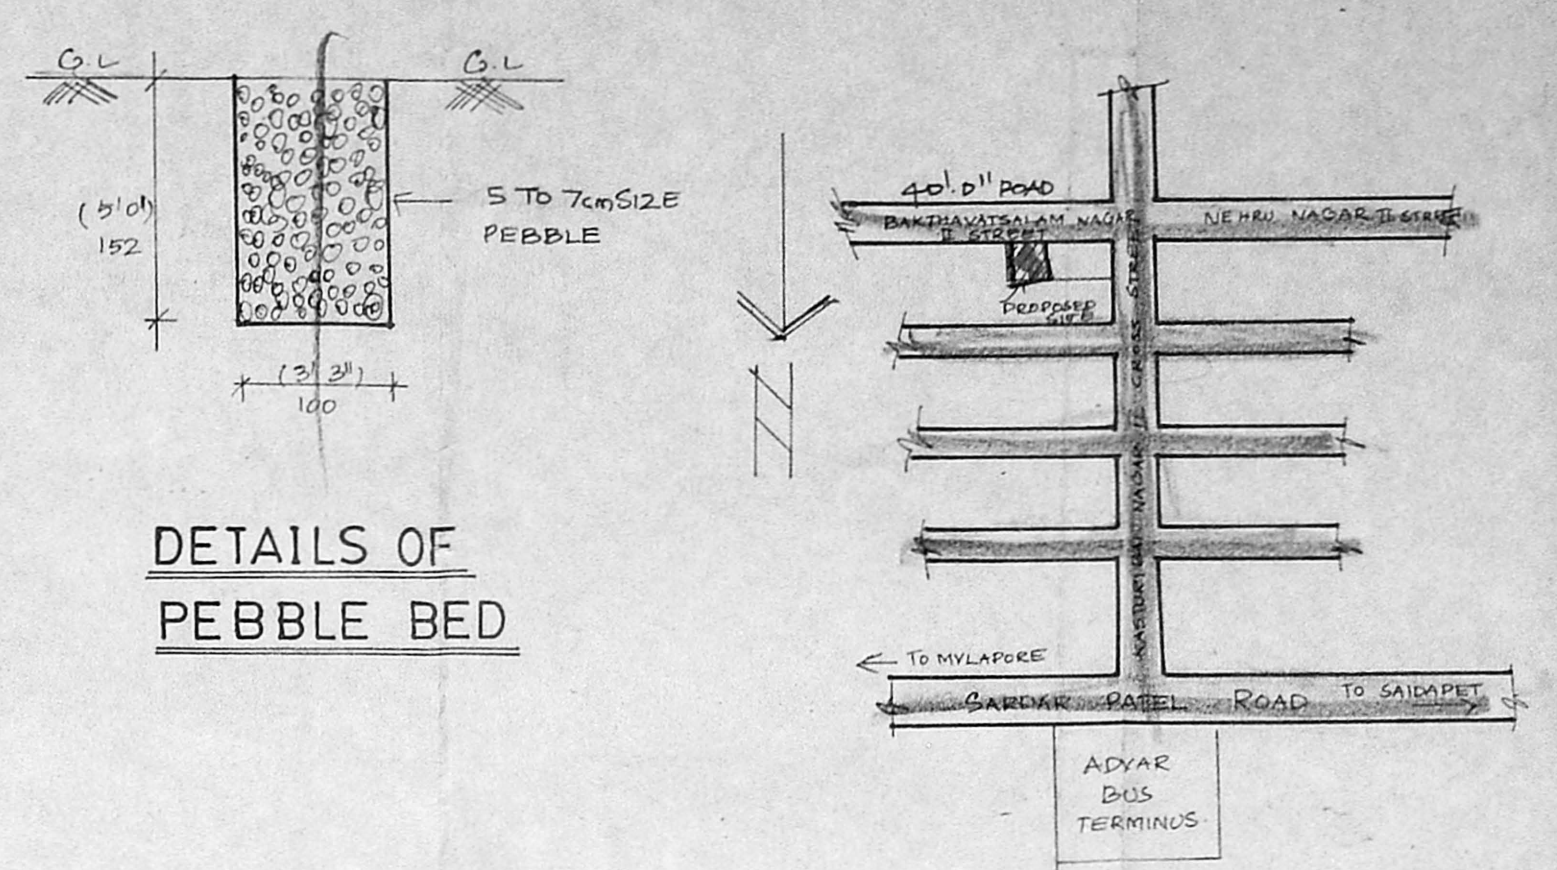 G.L
G.L
(5'0")
152
5 TO 7cm SIZE
PEBBLE
(3' 3")
100
DETAILS OF
PEBBLE BED
N
40'.0" ROAD
BAKTHAVATSALAM NAGAR
II STREET
NEHRU NAGAR II STREET
PROPOSED
SITE
KASTURIBAI NAGAR II CROSS STREET
TO MYLAPORE
SARDAR PATEL ROAD
TO SAIDAPET
ADYAR
BUS
TERMINUS